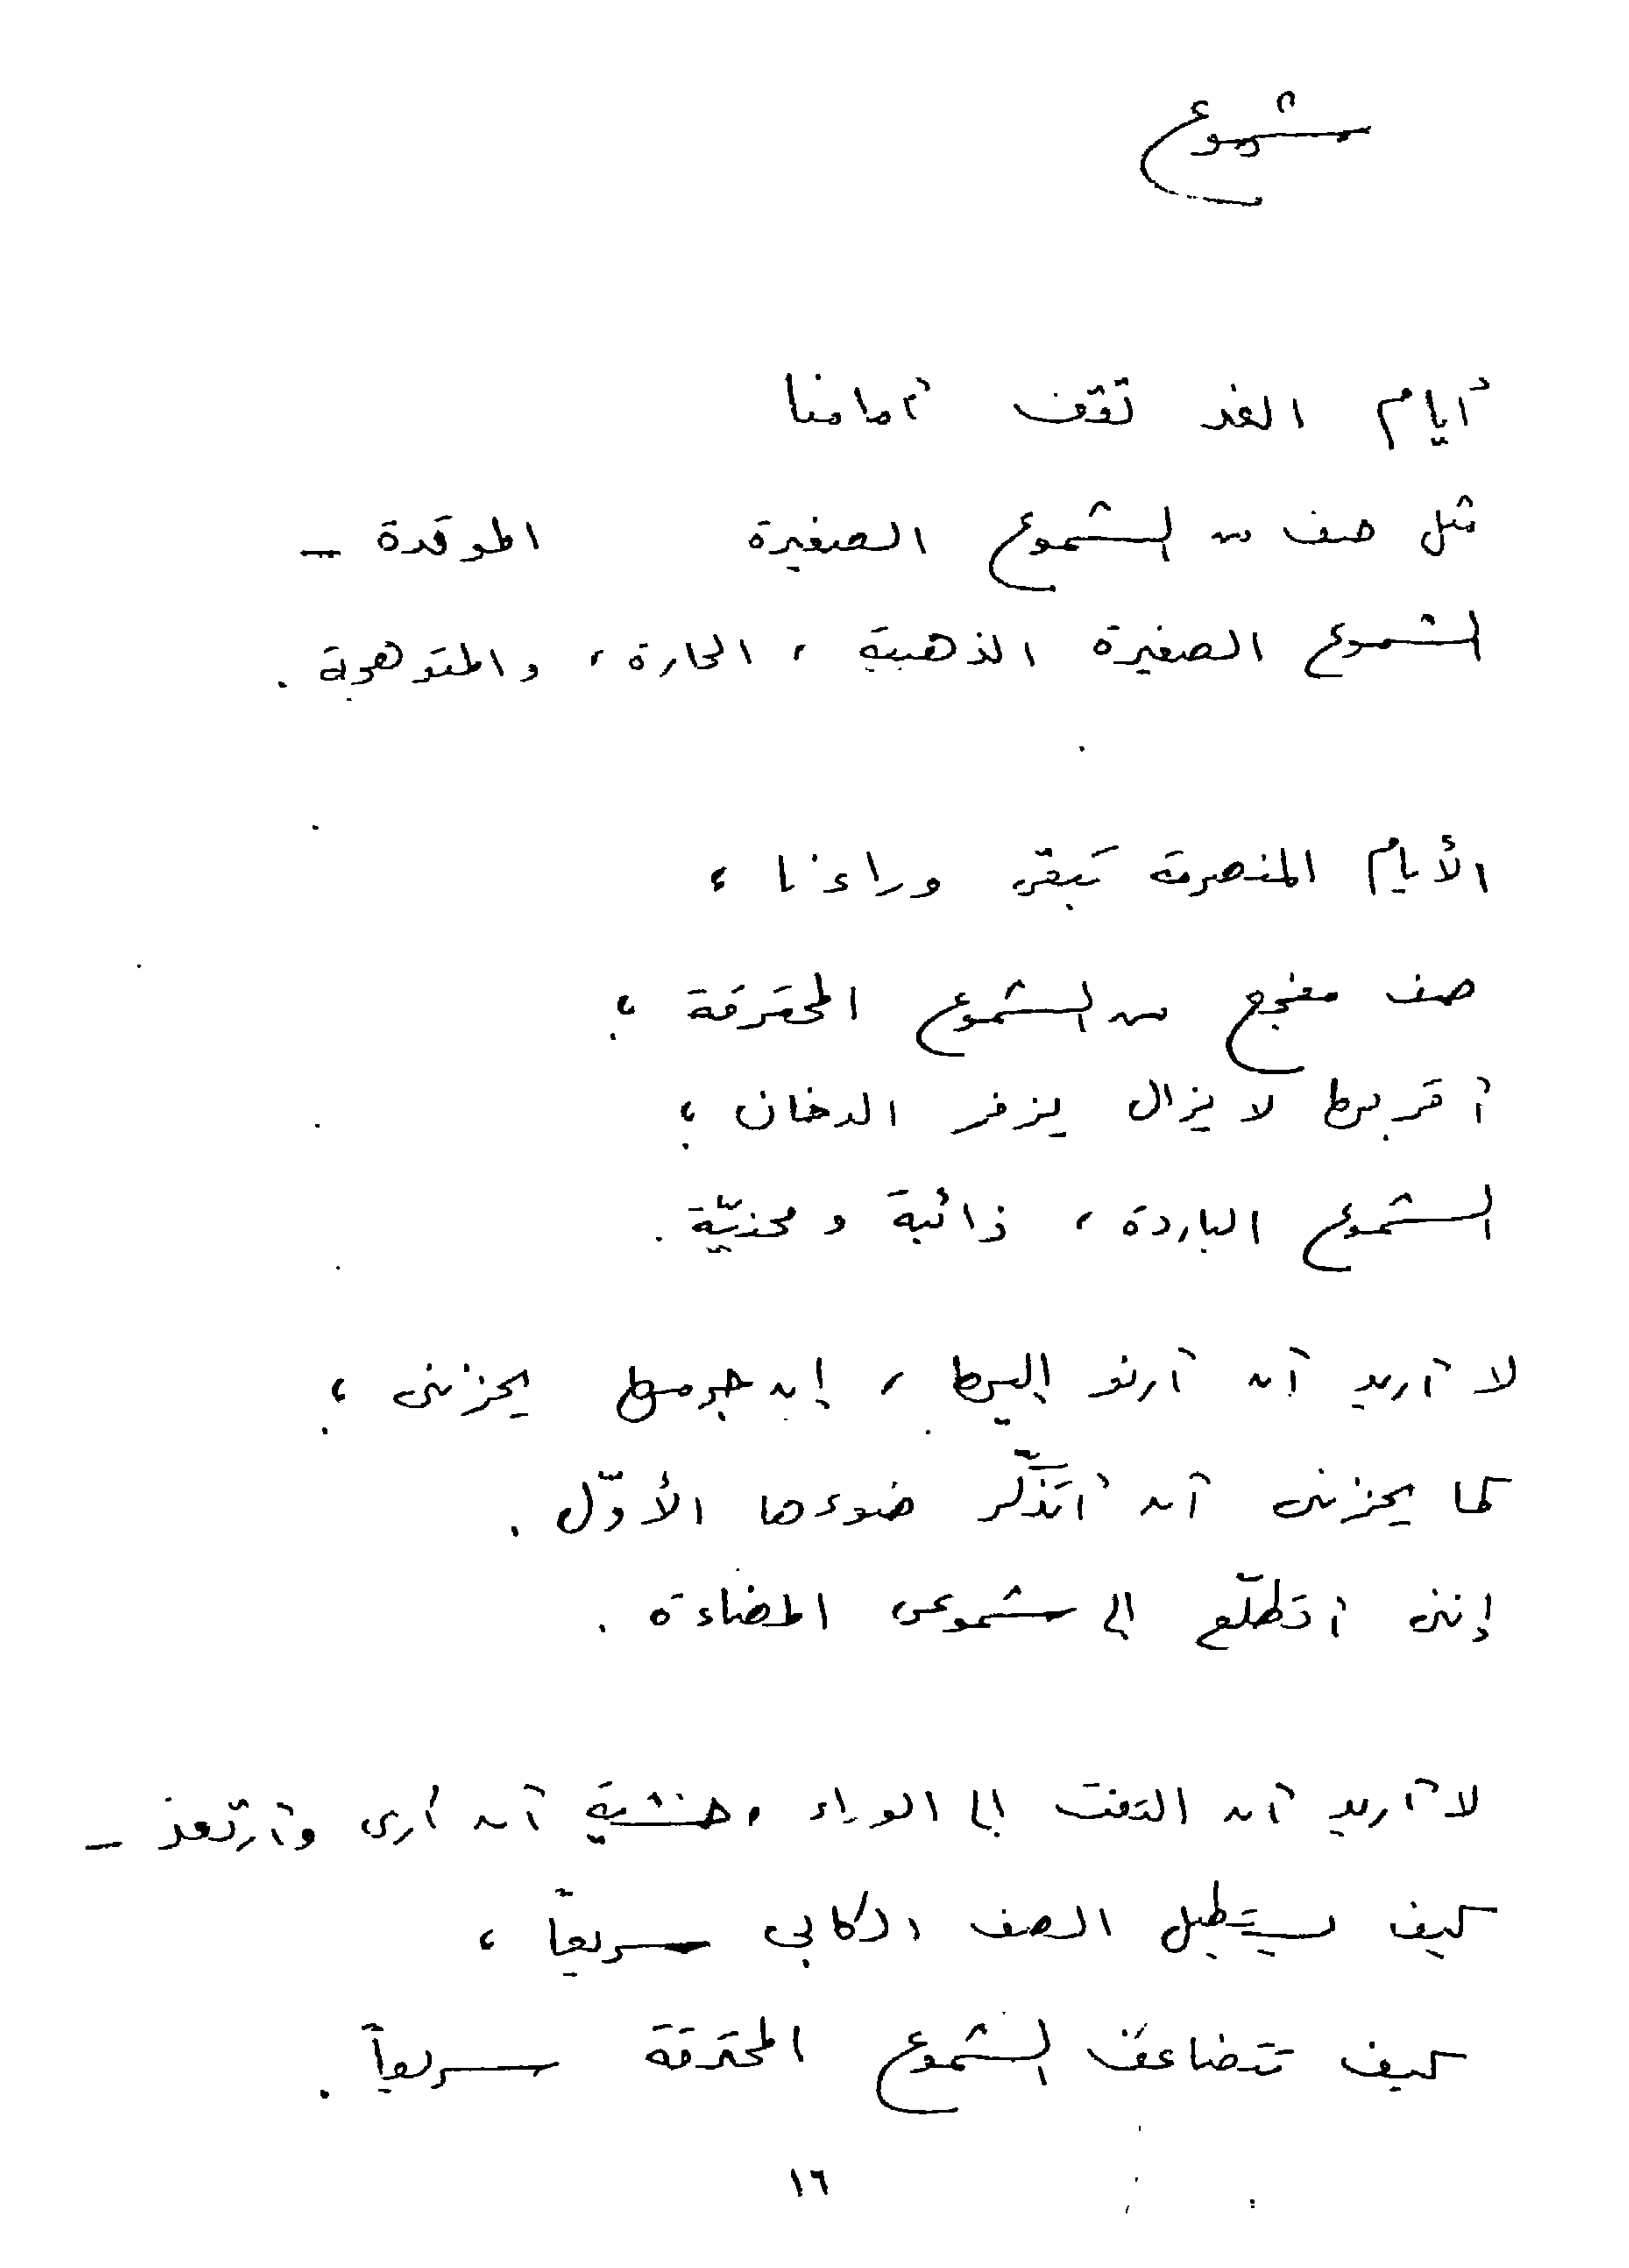 شموع
أيام الغد تقف أمامنا
مثل صف من الشموع الصغيرة الموقدة ـ
الشموع الصغيرة الذهبية ، الحارة ، والمتوهجة .
الأيام المنصرمة تبقى وراءنا ،
صف مفجع من الشموع المحترقة ؛
أقربها لا يزال يزفر الدخان ؛
الشموع الباردة ، ذائبة و محنيّة .
لا أريد أن أرنو إليها ، إن جرمها يحزنني ؛
كما يحزنني أن أتذكّر ضوءها الأوّل .
إنني أتطلّع إلى شموعي المضاءة .
لا أريد أن التفت إلى الوراء ، خشية أن أرى وأرتعد ـ
كيف يستطيل الصف الكابي سريعاً ،
كيف تتضاعف الشموع المحترقة سريعاً .
١٦